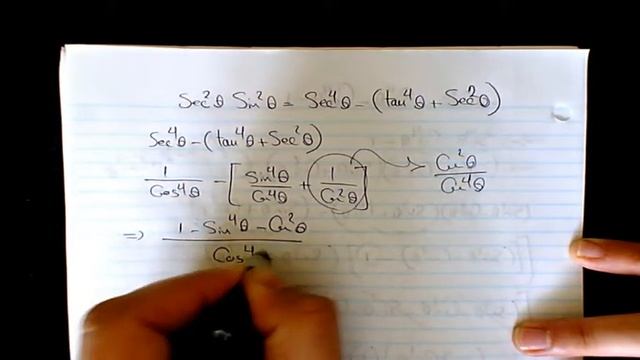 Sec²θ Sin²θ = Sec⁴θ - (tan⁴θ + Sec²θ)
Sec⁴θ - (tan⁴θ + Sec²θ)
1/Cos⁴θ - [Sin⁴θ/Cos⁴θ + 1/Cos²θ] → Cos²θ/Cos⁴θ
⇒ (1 - Sin⁴θ - Cos²θ)/Cos⁴